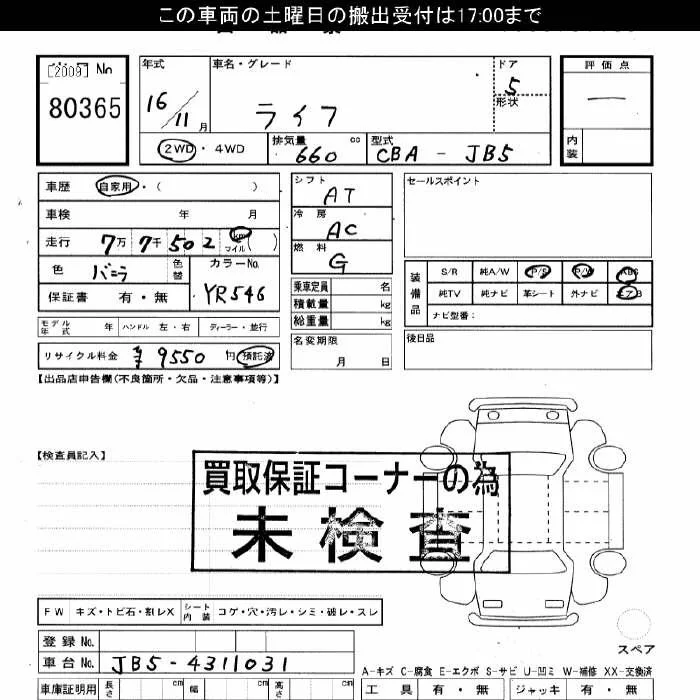 この車両の土曜日の搬出受付は17:00まで
[2009] No
80365
年式 車名・グレード ドア 評価点
16/11月 ライフ 5 —
形状
2WD・4WD 排気量 660 cc 型式 CBA - JB5 内装
車歴 自家用・( )
車検 年 月
走行 7万 7千 502 km マイル ( )
色 バニラ 色替 カラーNo. YR546
保証書 有・無
モデル年式 年 ハンドル 左・右 ディーラー・並行
リサイクル料金 ¥9550 円 預託済
シフト AT
冷房 AC
燃料 G
乗車定員 名
積載量 kg
総重量 kg
名変期限
月 日
セールスポイント
装備品 S/R 純A/W P/S P/W ABS
純TV 純ナビ 革シート 外ナビ エアB
ナビ型番:
後日品
【出品店申告欄(不良箇所・欠品・注意事項等)】
【検査員記入】
買取保証コーナーの為
未検査
FW キズ・トビ石・割レX シート内装 コゲ・穴・汚レ・シミ・破レ・スレ
登録No.
車台No. JB5-4311031
車庫証明用 長さ cm 幅 cm 高さ cm
スペア
A-キズ C-腐食 E-エクボ S-サビ U-凹ミ W-補修 XX-交換済
工具 有・無 ジャッキ 有・無